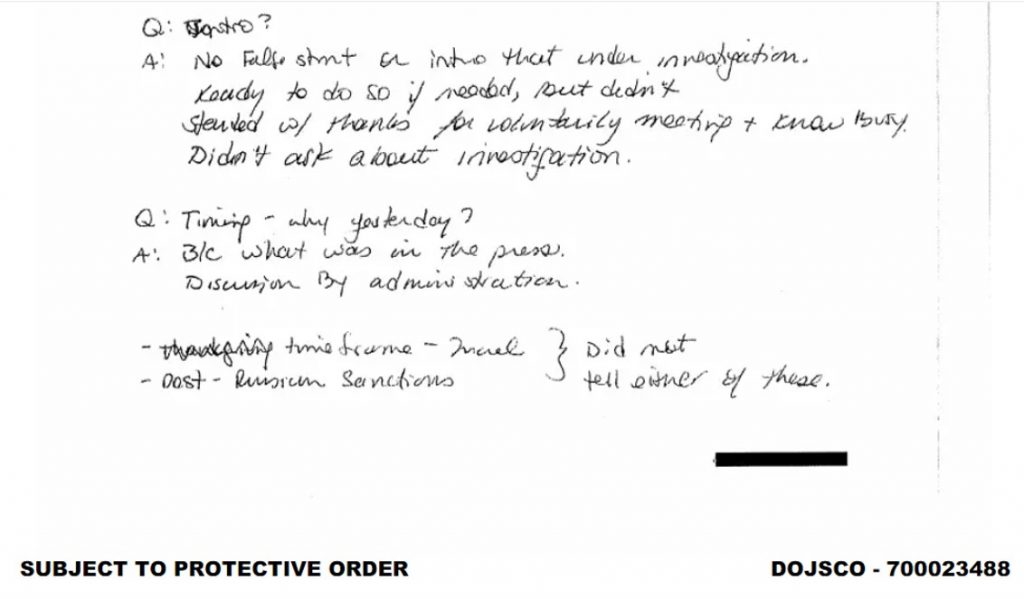 Q: Intro?
A: No False stmt or intro that under investigation.
Ready to do so if needed, but didn't
Started w/ thanks for voluntarily meeting + know Busy.
Didn't ask about investigation.
Q: Timing - why yesterday?
A: B/c what was in the press.
Discussion By administration.
- thanksgiving timeframe - Israel } Did not
- Post - Russian Sanctions tell either of these.
SUBJECT TO PROTECTIVE ORDER DOJSCO - 700023488